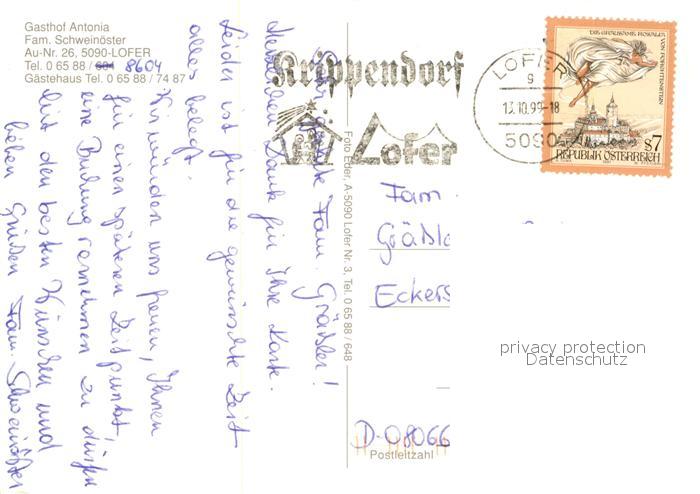 Gasthof Antonia
Fam. Schweinöster
Au-Nr. 26, 5090-LOFER
Tel. 0 65 88 / 8604
Gästehaus Tel. 0 65 88 / 74 87
Sehr geehrte Fam. Gräßler!
Herzlichen Dank für Ihre Karte.
Leider ist für die gewünschte Zeit
alles belegt.
Wir würden uns freuen, Ihnen
für einen späteren Zeitpunkt,
eine Buchung vornehmen zu dürfen
Mit den besten Wünschen und
lieben Grüßen Fam. Schweinöster
Foto Eder, A-5090 Lofer Nr. 3, Tel. 0 65 88 / 648
Krippendorf
Lofer
LOFER
g
13.10.99-18
5090
DIE GRAUSAME ROSALIA VON FORCHTENSTEIN
S 7
REPUBLIK ÖSTERREICH
Fam.
Gräßle
Eckers
D-08066
Postleitzahl
privacy protection
Datenschutz